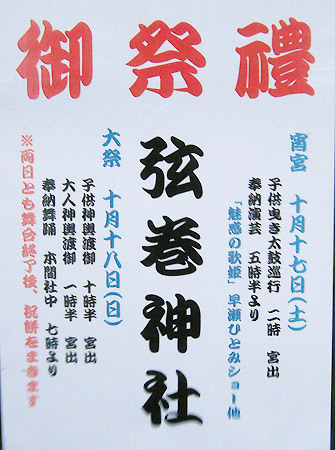 御祭禮
宵宮 十月十七日(土)
子供曳き太鼓巡行 二時 宮出
奉納演芸 五時半より
「魅惑の歌姫」早瀬ひとみショー他
弦巻神社
大祭 十月十八日(日)
子供神輿渡御 十時半 宮出
大人神輿渡御 一時半 宮出
奉納舞踊 本間社中 七時より
※両日とも舞台終了後、祝餅をまきます